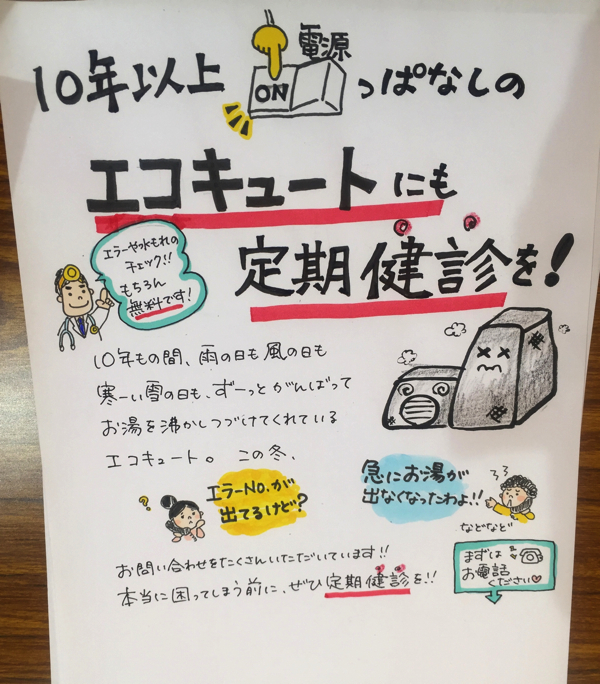 電源
10年以上 ON っぱなしの
エコキュートにも
定期健診を!
エラーや水もれの
チェック!!
もちろん
無料です!
10年もの間、雨の日も風の日も
寒ーい雪の日も、ずーっとがんばって
お湯を沸かしつづけてくれている
エコキュート。 この冬、
エラーNO.が
出てるけど?
急にお湯が
出なくなったわよ!!
などなど
お問い合わせをたくさんいただいています!!
本当に困ってしまう前に、ぜひ定期健診を!!
まずは
お電話
ください♡